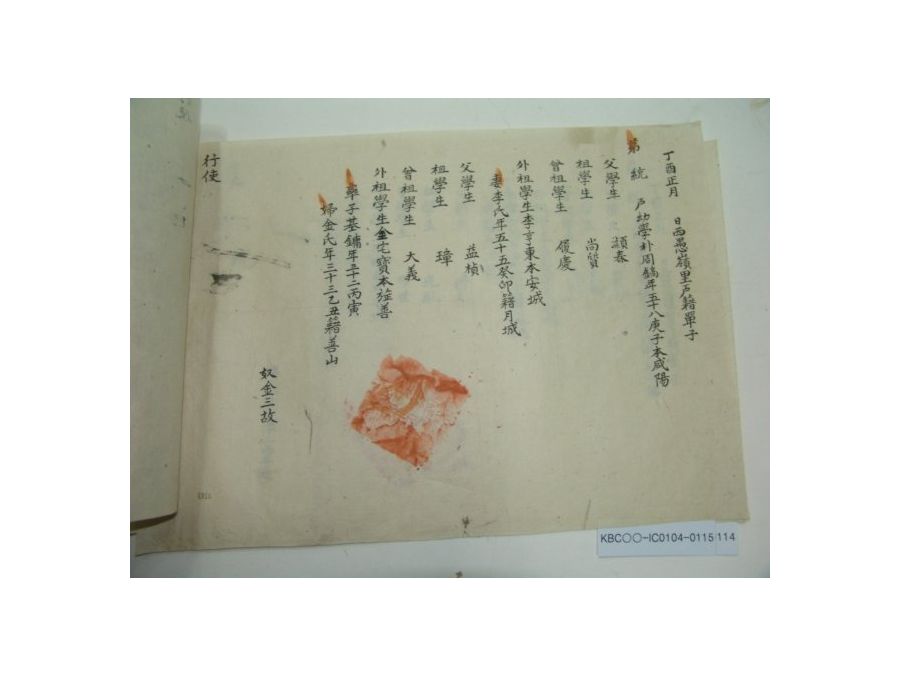 丁酉正月 日西愚嶺里戶籍單子
第 統 戶幼學朴周鎬年五十八庚子本咸陽
父學生 顥春
祖學生 尚質
曾祖學生 履慶
外祖學生李亨東本安城
妻李氏年五十五癸卯籍月城
父學生 益楨
祖學生 璋
曾祖學生 大義
外祖學生金宅寶本善
率子基鏞年三十二丙寅
婦金氏年三十三乙丑籍善山
奴金三故
行使
KBC○○-IC0104-0115 114